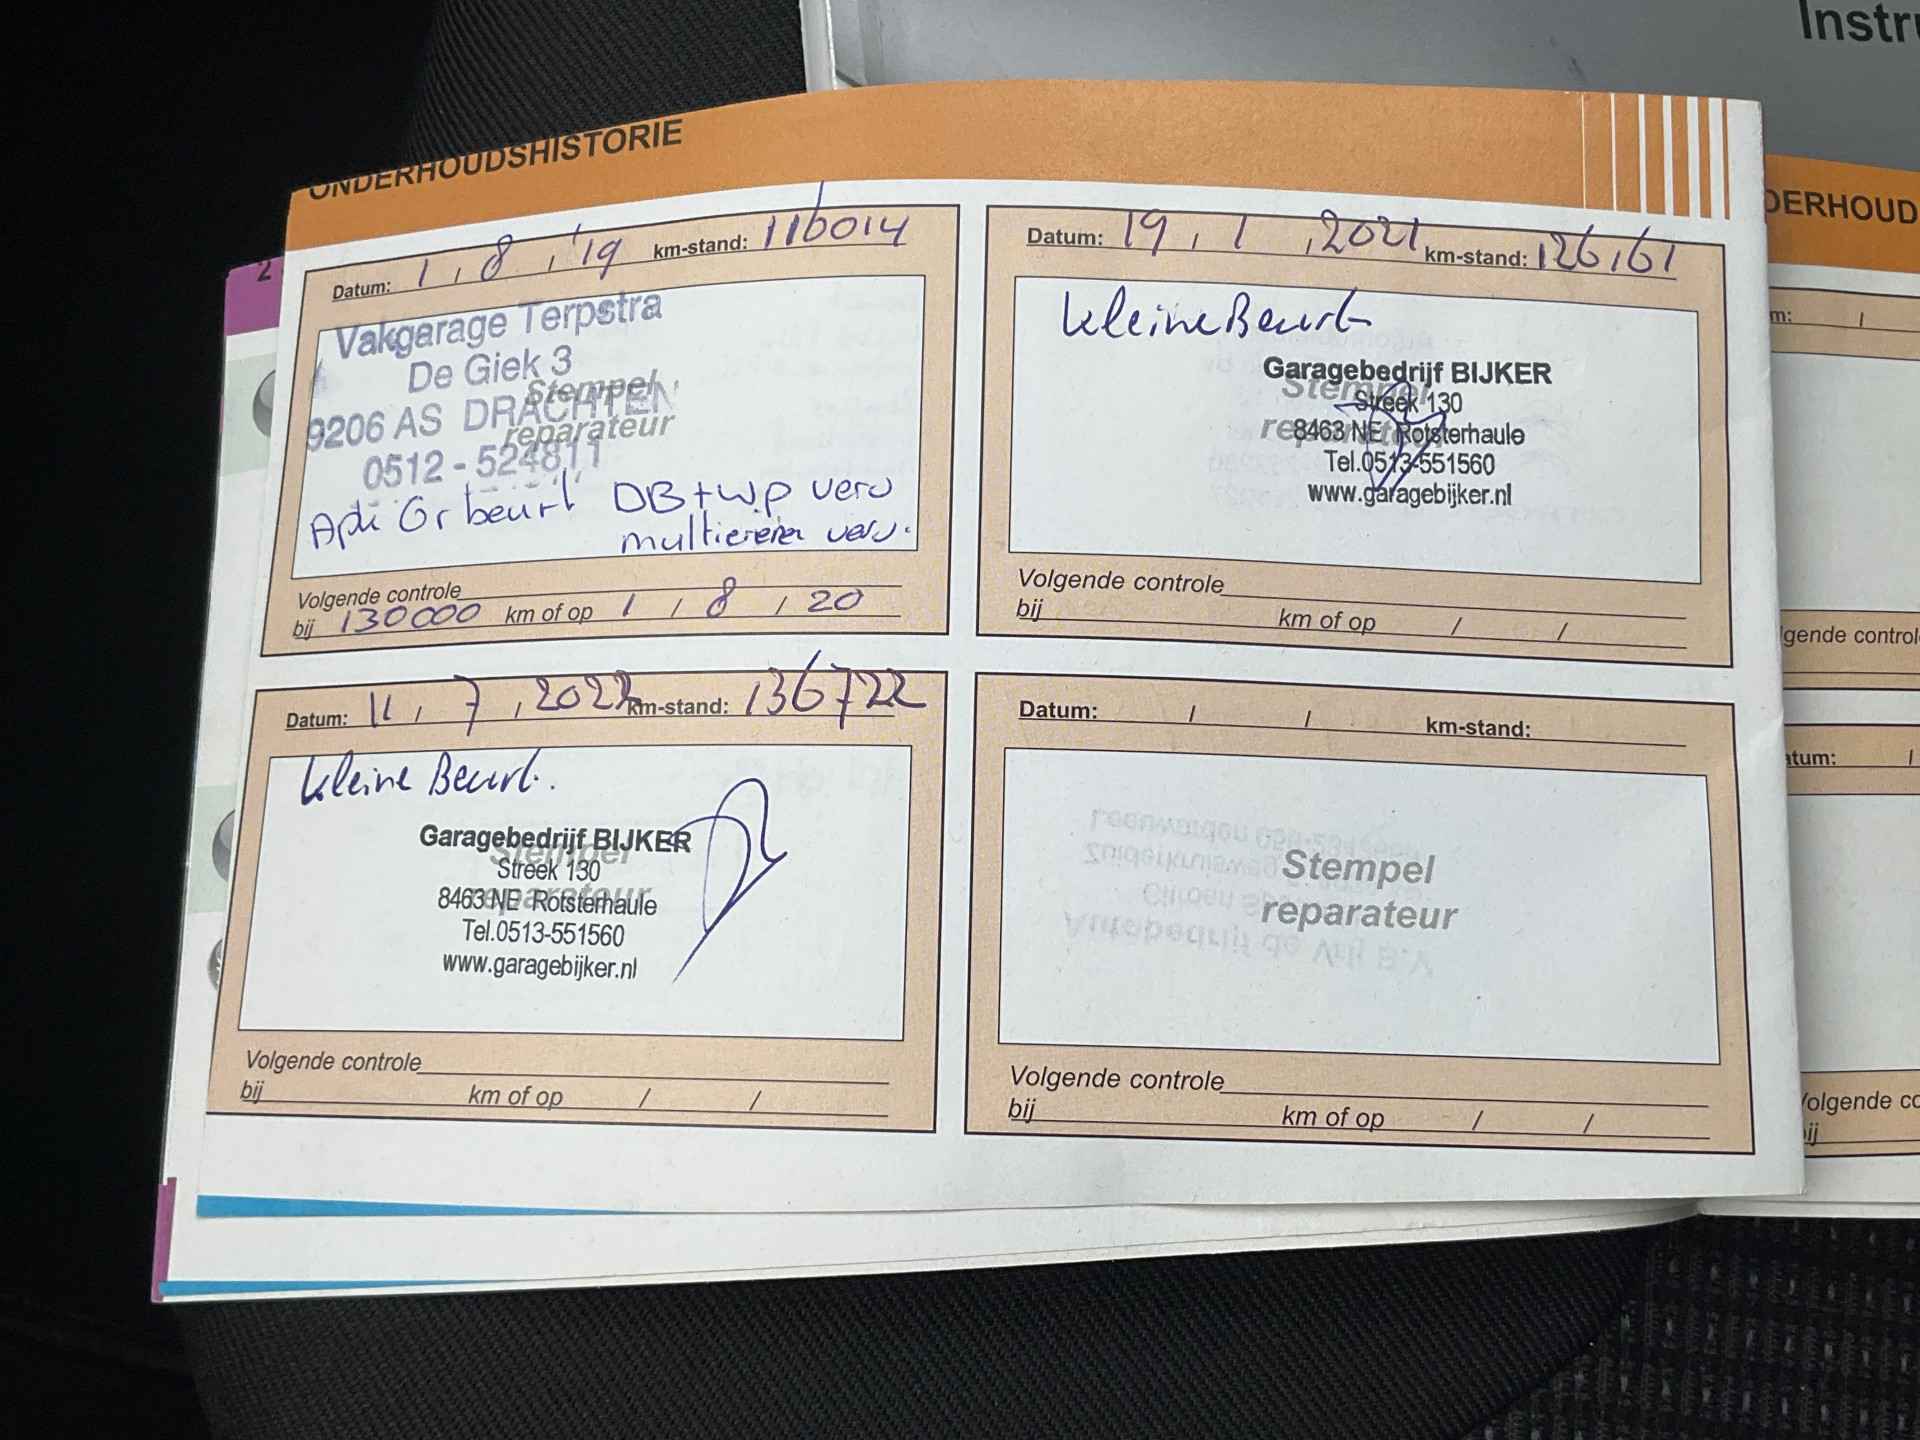 Instru
ONDERHOUDSHISTORIE
Datum: 1 / 8 / '19 km-stand: 116014
Vakgarage Terpstra
De Giek 3
Stempel
9206 AS DRACHTEN
reparateur
0512 - 524811
Apk Gr beurt DB + WP verv
multieriem verv.
Volgende controle
bij 130000 km of op 1 / 8 / 20
Datum: 19 / 1 / 2021 km-stand: 126161
kleine Beurt
Garagebedrijf BIJKER
Stempel
Streek 130
reparateur
8463 NE Rotsterhaule
Tel.0513-551560
www.garagebijker.nl
Volgende controle
bij km of op / /
Datum: 11 / 7 / 2022 km-stand: 136722
kleine Beurt.
Garagebedrijf BIJKER
Stempel
Streek 130
reparateur
8463 NE Rotsterhaule
Tel.0513-551560
www.garagebijker.nl
Volgende controle
bij km of op / /
Datum: / / km-stand:
Stempel
reparateur
Volgende controle
bij km of op / /
DERHOUD
m: /
lgende control
atum: /
Volgende co
ij
2